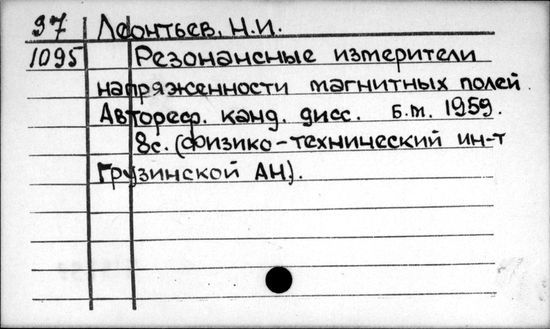 97 Леонтьев, Н.И.
1095 Резонансные измерители
напряженности магнитных полей
Автореф. канд. дисс. Б.м. 1959.
8с. (физико-технический ин-т
Грузинской АН).